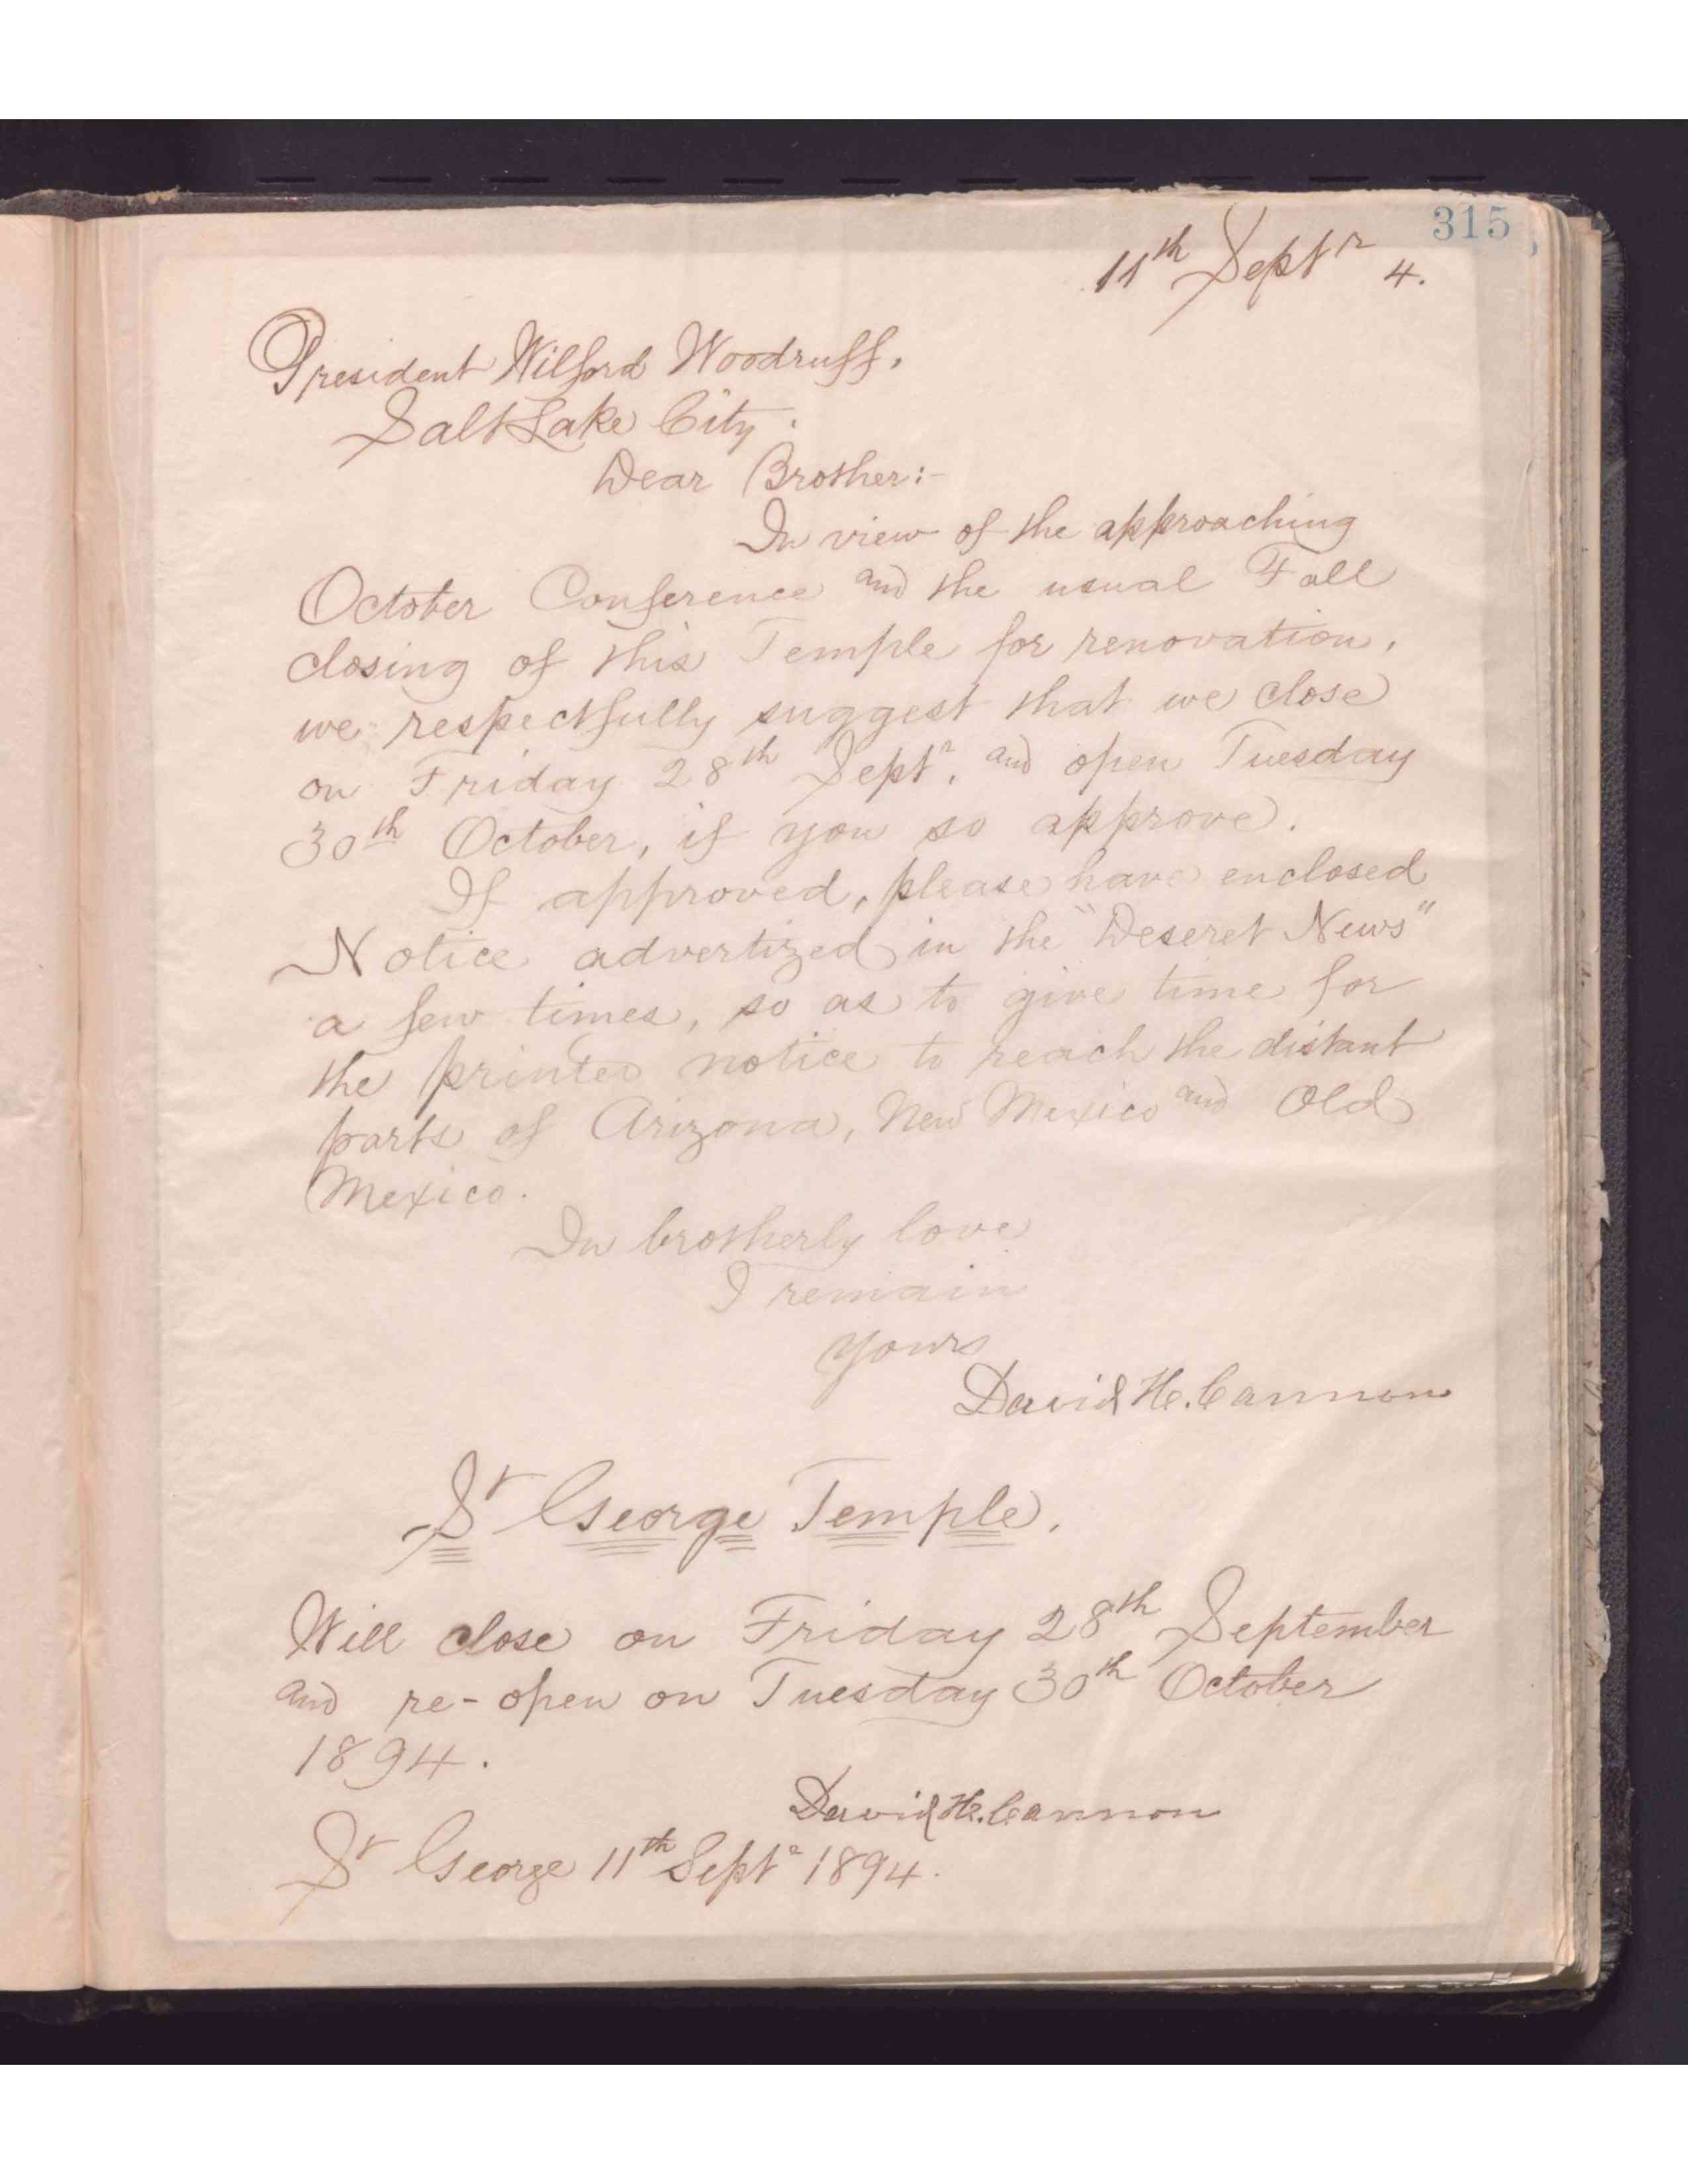 315
11th Septr 4.
President Wilford Woodruff,
Salt Lake City.
Dear Brother:-
In view of the approaching
October Conference and the usual Fall
closing of this Temple for renovation,
we respectfully suggest that we close
on Friday 28th Septr, and open Tuesday
30th October, if you so approve.
If approved, please have enclosed
Notice advertized in the "Deseret News"
a few times, so as to give time for
the printed notice to reach the distant
parts of Arizona, New Mexico and Old
Mexico.
In brotherly love
I remain
Yours
David H. Cannon
St George Temple.
Will close on Friday 28th September
and re-open on Tuesday 30th October
1894.
David H. Cannon
St George 11th Septr 1894.